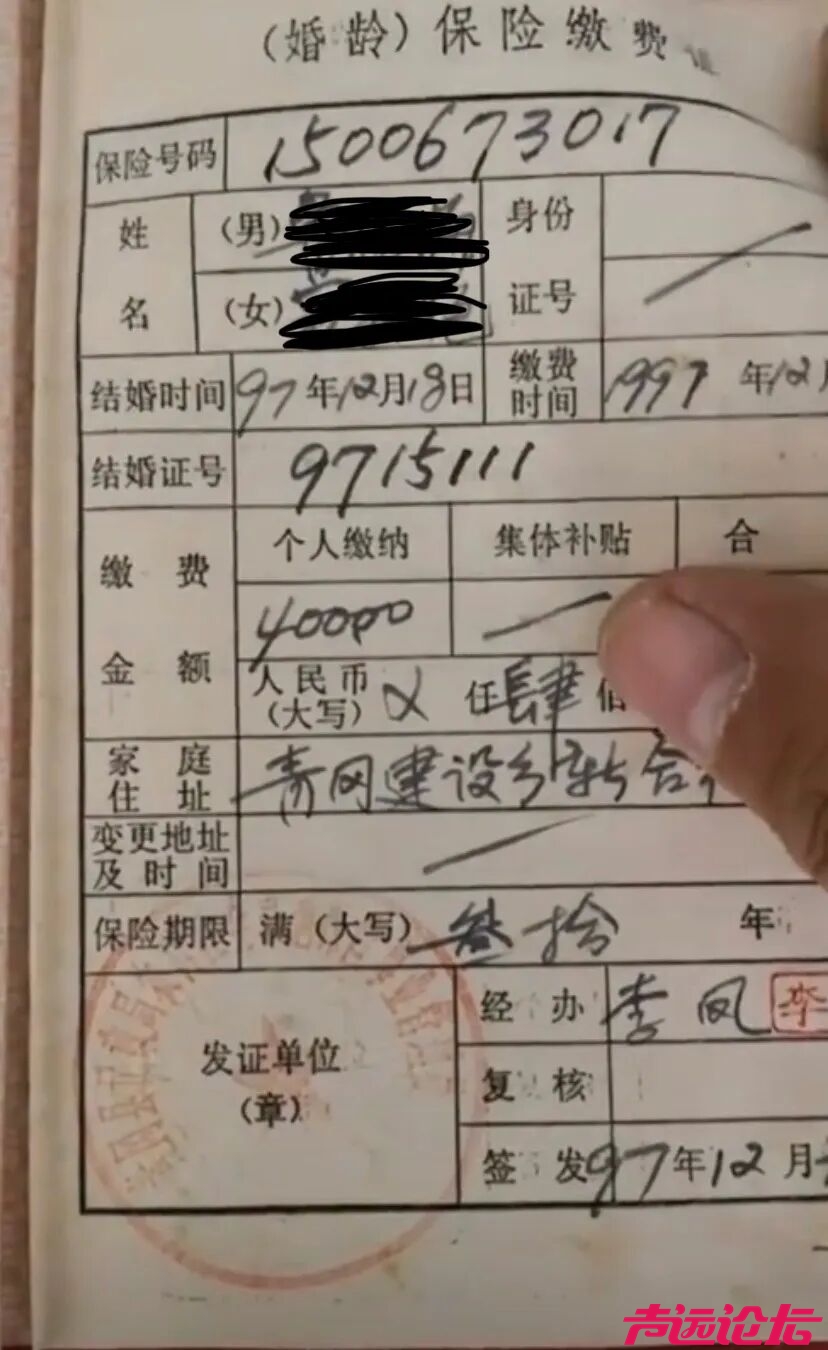 (婚龄)保险缴费证
保险号码 1500673017
姓名 (男) 身份证号
(女)
结婚时间 97年12月18日 缴费时间 1997年12月
结婚证号 9715111
缴费金额 个人缴纳 集体补贴 合
40000
人民币(大写) 仟肆佰
家庭住址 青冈建设乡新合
变更地址及时间
保险期限 满(大写) 叁拾 年
发证单位(章) 经办 李凤 李
复核
签发 97年12月
声远论坛